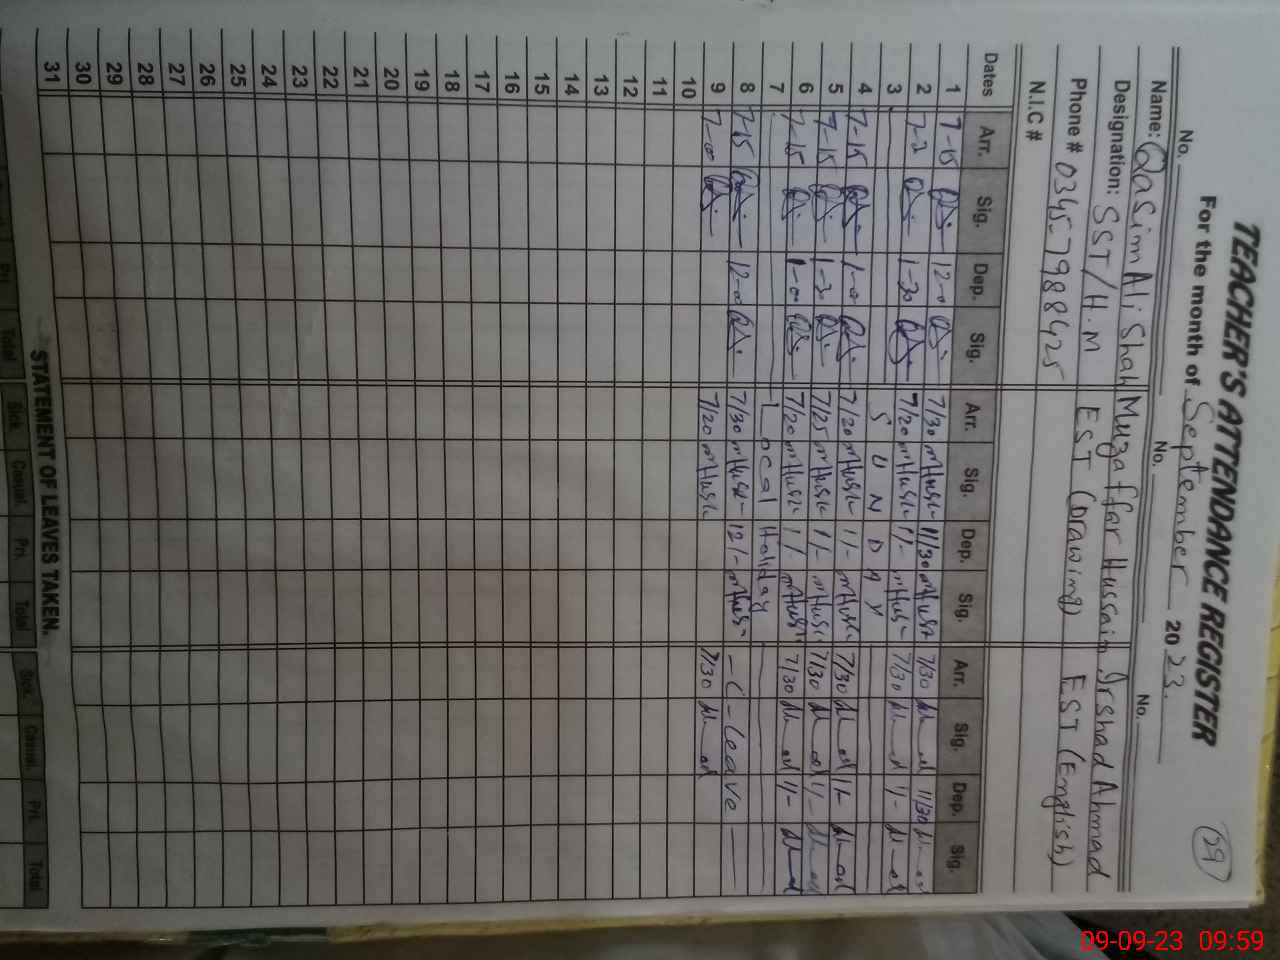 TEACHER'S ATTENDANCE REGISTER
For the month of September 2023.
59
No. No. No.
Name: Qasim Ali Shah Muzaffar Hussain Irshad Ahmad
Designation: SST/H.M EST (Drawing) EST (English)
Phone # 0345-7988425
N.I.C #
Dates Arr. Sig. Dep. Sig. Arr. Sig. Dep. Sig. Arr. Sig. Dep. Sig.
1 7-15 12-0 7/30 mHusk 11/30 mHusk 7/30 11/30
2 7-2 1-30 7/20 mHusk 1/- mHusk 7/30 1/-
3 SUNDAY
4 7-15 1-0 7/20 mHusk 1/- mHusk 7/30 1/-
5 7-15 1-3 7/25 mHusk 1/- mHusk 7/30 1/-
6 7-15 1-00 7/20 mHusk 1/- mHusk 7/30 1/-
7 Local Holiday
8 7-15 12-0 7/30 mHusk 12/- mHusk - C-leave -
9 7-00 7/20 mHusk 7/30
10
11
12
13
14
15
16
17
18
19
20
21
22
23
24
25
26
27
28
29
30
31
STATEMENT OF LEAVES TAKEN.
Pri. Total Sick. Casual. Pri. Total Sick. Casual. Pri. Total
09-09-23 09:59